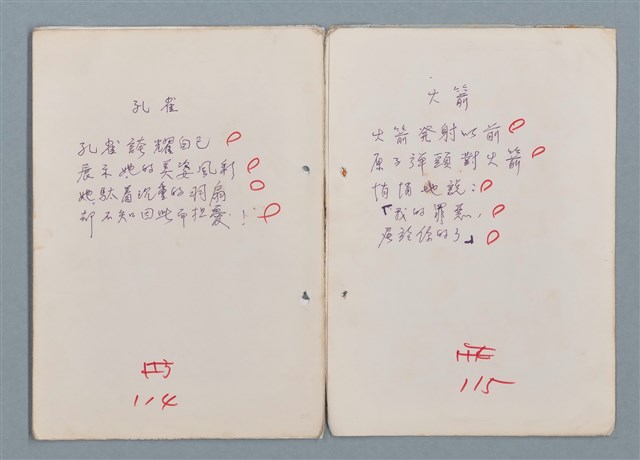 孔雀
孔雀誇耀自己
展示她的美姿風彩
她馱着沉重的羽扇
却不知因此而担憂！
114
火箭
火箭発射以前
原子弾頭對火箭
悄悄地說：
「我的罪惡，
屬於你的了」
115